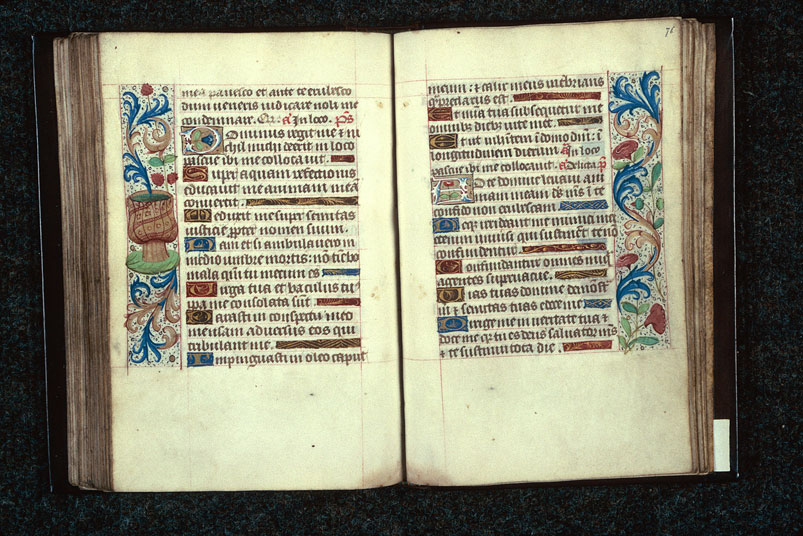 mea pavesco et ante te erubesco
dum veneris iudicare noli me
condempnare. Or. an In loco. ps
Dominus regit me et ni
chil michi deerit in loco
pascue ibi me collocavit.
Super aquam refectionis
educavit me animam meã
convertit.
Deduxit me super semitas
iusticie propter nomen suum.
Nam et si ambulavero in
medio umbre mortis: nõ timebo
mala qm̃ tu mecum es
Virga tua et baculus tu
us ipsa me consolata sũt.
Parasti in conspectu meo
mensam adversus eos qui
tribulant me.
Impinguasti in oleo caput
76
meum: et calix meus inebrians
q̃ preclarus est.
Et mĩa tua subsequetur me
omnibꝫ diebꝫ vite mee.
Et ut inhitem ĩ domo dñi: ĩ
longitudinem dierum. an In loco
pascue ibi me collocavit. an Delicta. p̃
Ad te domine levavi ani
mam meam ds̃ ms̃ ĩ te
confido non erubescam.
Neqꝫ irrideant me inimici mei
etenim universi qui sustinẽt te nõ
confundentur.
Confundantur omnes iniq̃
agentes supervacue.
Vias tuas domine demõst
michi et semitas tuas edoce me
Dirige me in veritate tua et
doce me qꝫ tu es deus salvator ms̃
et te sustinui tota die.